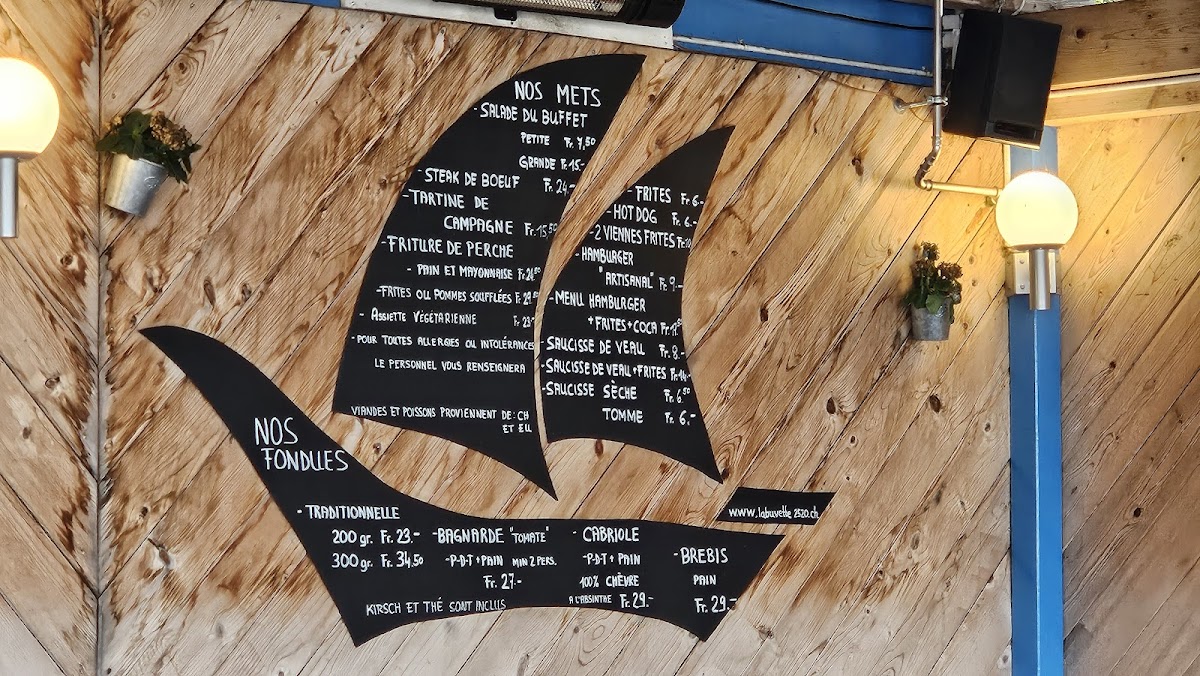 NOS METS
-SALADE DU BUFFET
PETITE Fr. 7,50
GRANDE Fr. 15.-
- STEAK DE BOEUF Fr. 24.-
-TARTINE DE
CAMPAGNE Fr. 15,50
-FRITURE DE PERCHE
- PAIN ET MAYONNAISE
-FRITES OU POMMES SOUFFLÉES
- ASSIETTE VÉGÉTARIENNE Fr. 23.-
-POUR TOUTES ALLERGIES OU INTOLÉRANCES
LE PERSONNEL VOUS RENSEIGNERA
VIANDES ET POISSONS PROVIENNENT DE: CH
ET EU
- FRITES Fr. 6.-
- HOT DOG Fr. 6.-
-2 VIENNES FRITES Fr.
-HAMBURGER
"ARTISANAL" Fr. 9.-
-MENU HAMBURGER
+FRITES+COCA Fr.
-SAUCISSE DE VEAU Fr. 8.-
-SAUCISSE DE VEAU+FRITES Fr. 14.-
-SAUCISSE SÈCHE Fr. 6.50
TOMME Fr. 6.-
www.labuvette2520.ch
NOS
FONDUES
- TRADITIONNELLE
200 gr. Fr. 23.-
300 gr. Fr. 34,50
-BAGNARDE "TOMATE"
-P-D-T+PAIN MIN 2 PERS.
Fr. 27.-
- CABRIOLE
-P-D-T + PAIN
100% CHÈVRE
A L'ABSINTHE Fr. 29.-
-BREBIS
PAIN
Fr. 29.-
KIRSCH ET THÉ SONT INCLUS